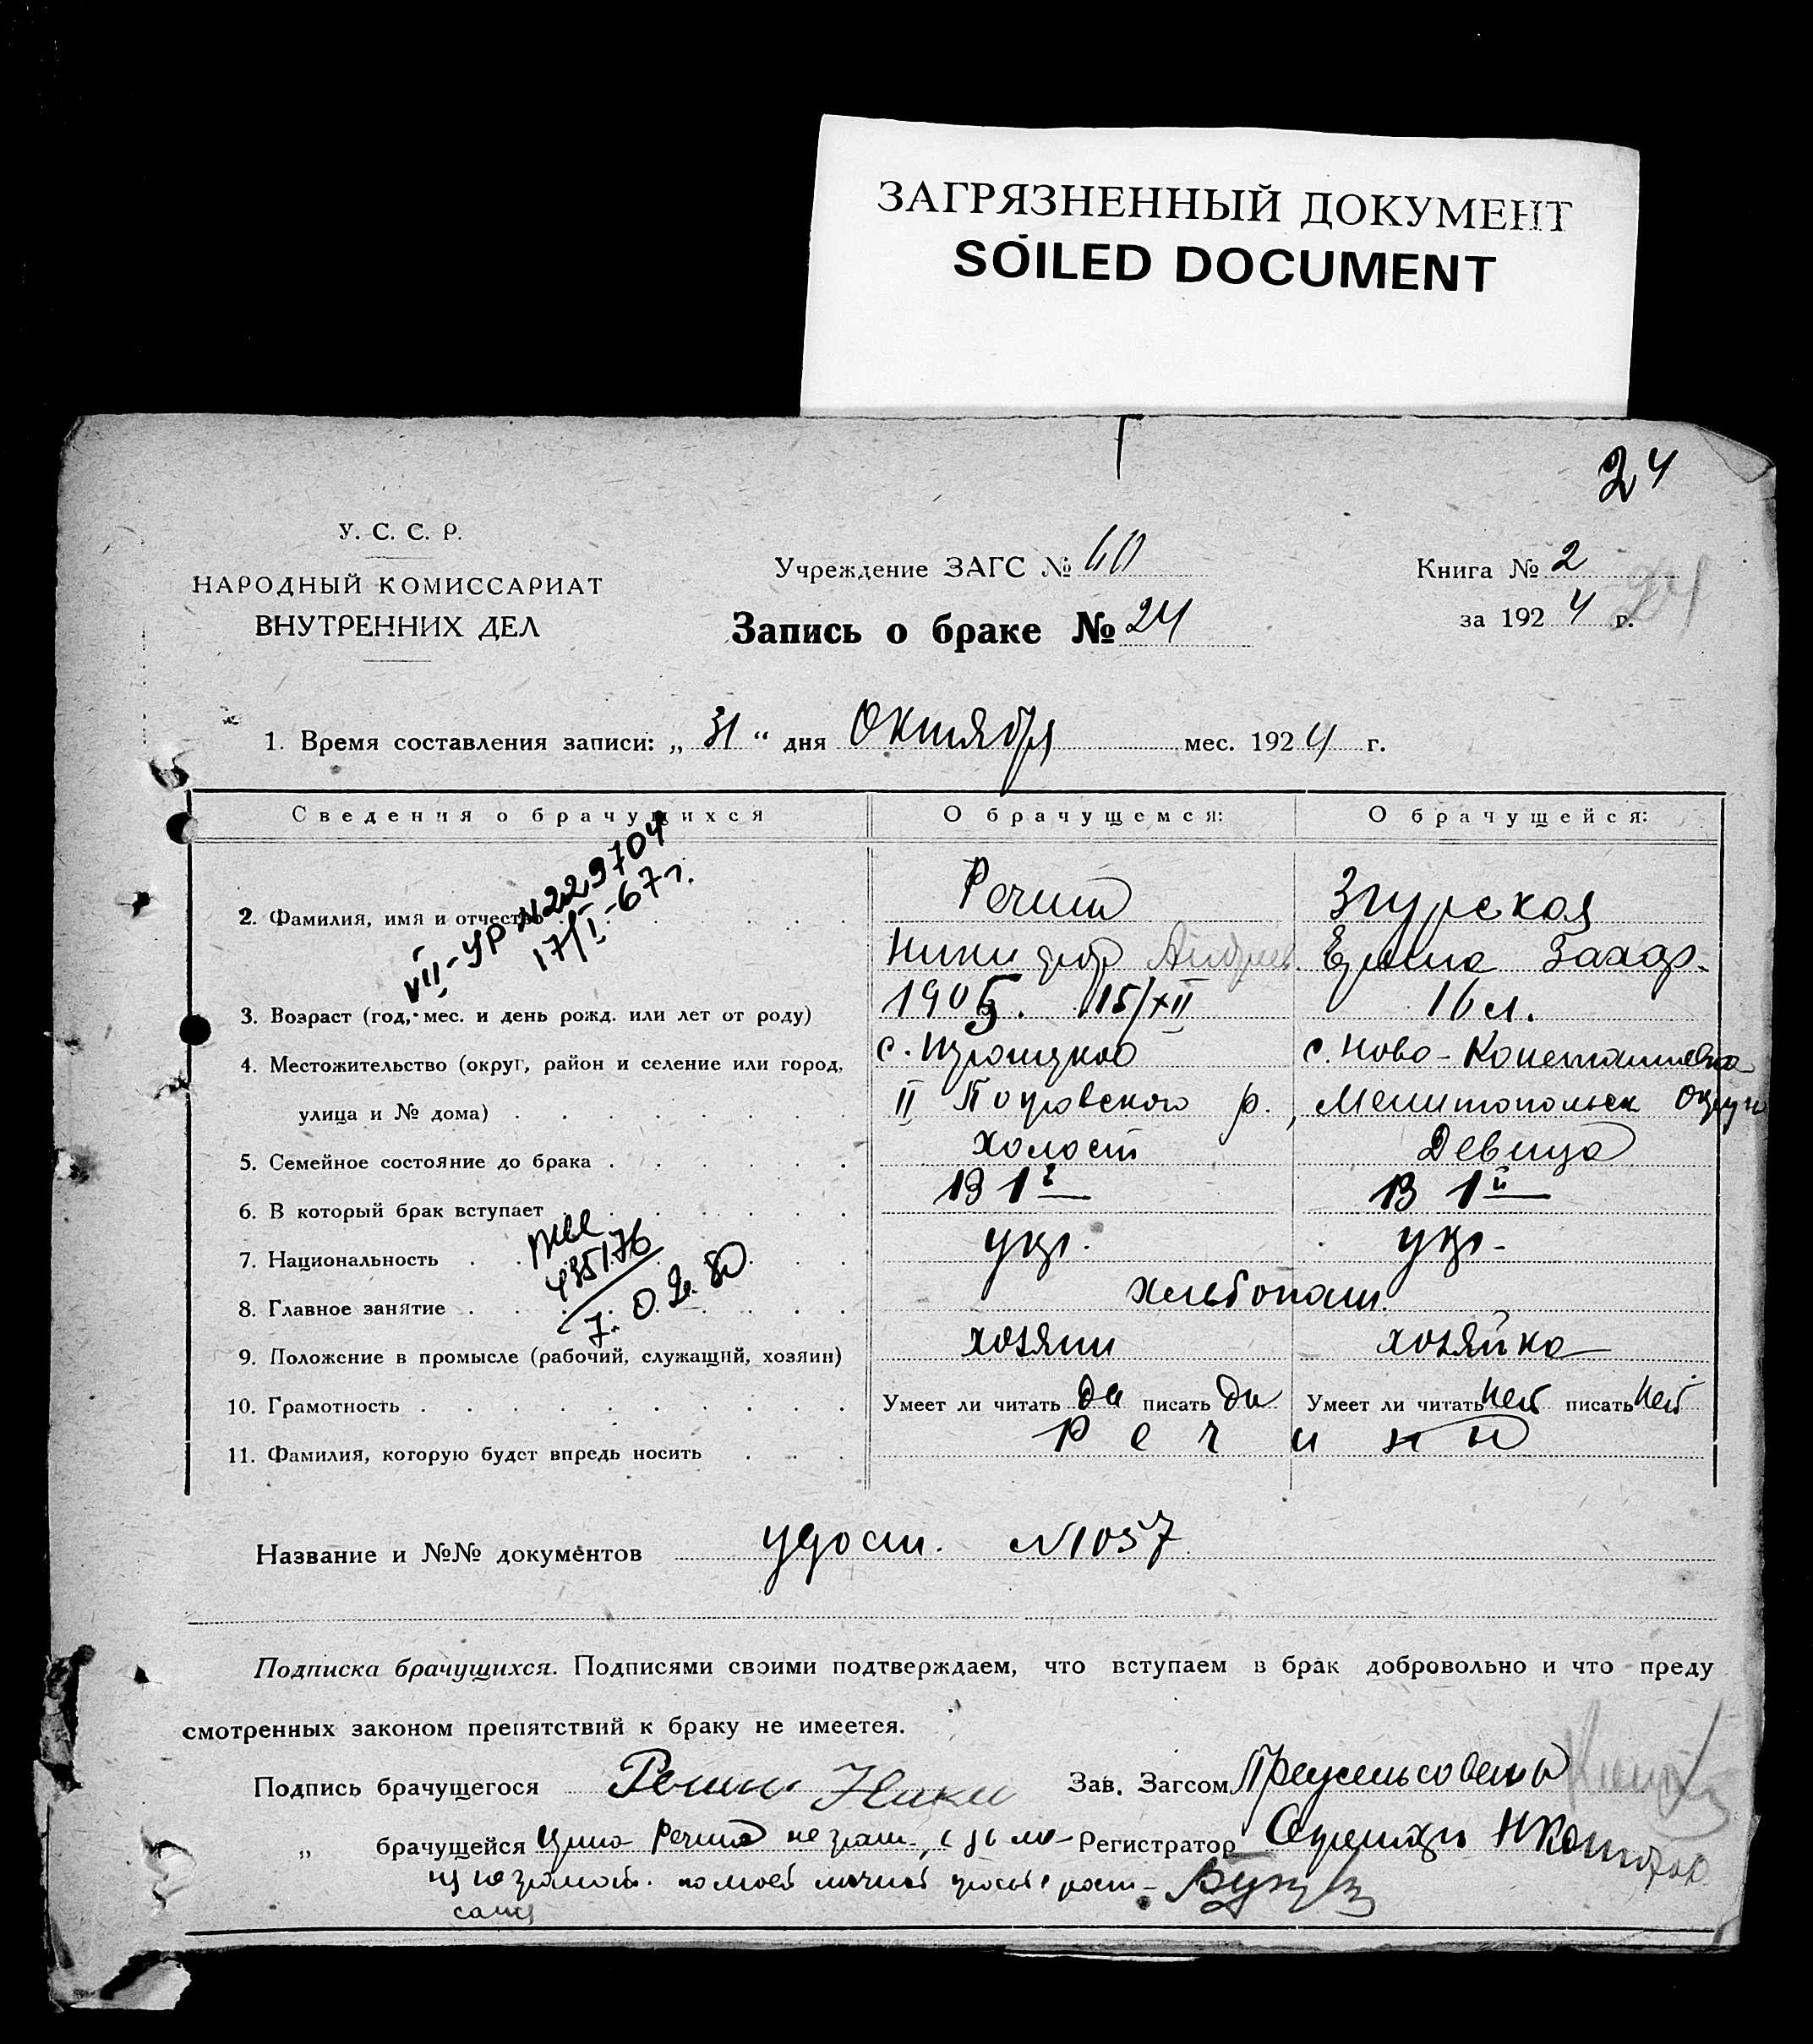 ЗАГРЯЗНЕННЫЙ ДОКУМЕНТ
SOILED DOCUMENT
24
У. С. С. Р.
НАРОДНЫЙ КОМИССАРИАТ
ВНУТРЕННИХ ДЕЛ
Учреждение ЗАГС № 60
Запись о браке № 24
Книга № 2
за 1924 г.
24
1. Время составления записи: „ 31 “ дня Октября мес. 1924 г.
Сведения о брачущихся
О брачущемся:
О брачущейся:
VII-УР №229704
17/I-67г.
2. Фамилия, имя и отчество
Речип
Згурская
Никифор Андреев.
Ирина Захар.
3. Возраст (год, мес. и день рожд. или лет от роду)
1905. 15/XII
16 л.
4. Местожительство (округ, район и селение или город,
с. Троицкое
с. Ново-Константиновка
улица и № дома)
II Покровского р.,
Мелитопольск Округ
5. Семейное состояние до брака
холост
Девица
6. В который брак вступает
В 1й
В 1й
7. Национальность
укр.
укр.
8. Главное занятие
Хлебопаш.
9. Положение в промысле (рабочий, служащий, хозяин)
хозяин
хозяйка
10. Грамотность
Умеет ли читать да писать да
Умеет ли читать нет писать нет
11. Фамилия, которую будет впредь носить
Название и №№ документов удост. №1057
Подписка брачущихся. Подписями своими подтверждаем, что вступаем в брак добровольно и что преду
смотренных законом препятствий к браку не имеетея.
Подпись брачущегося
Зав. Загсом Предсельсовета
„ брачущейся
Регистратор